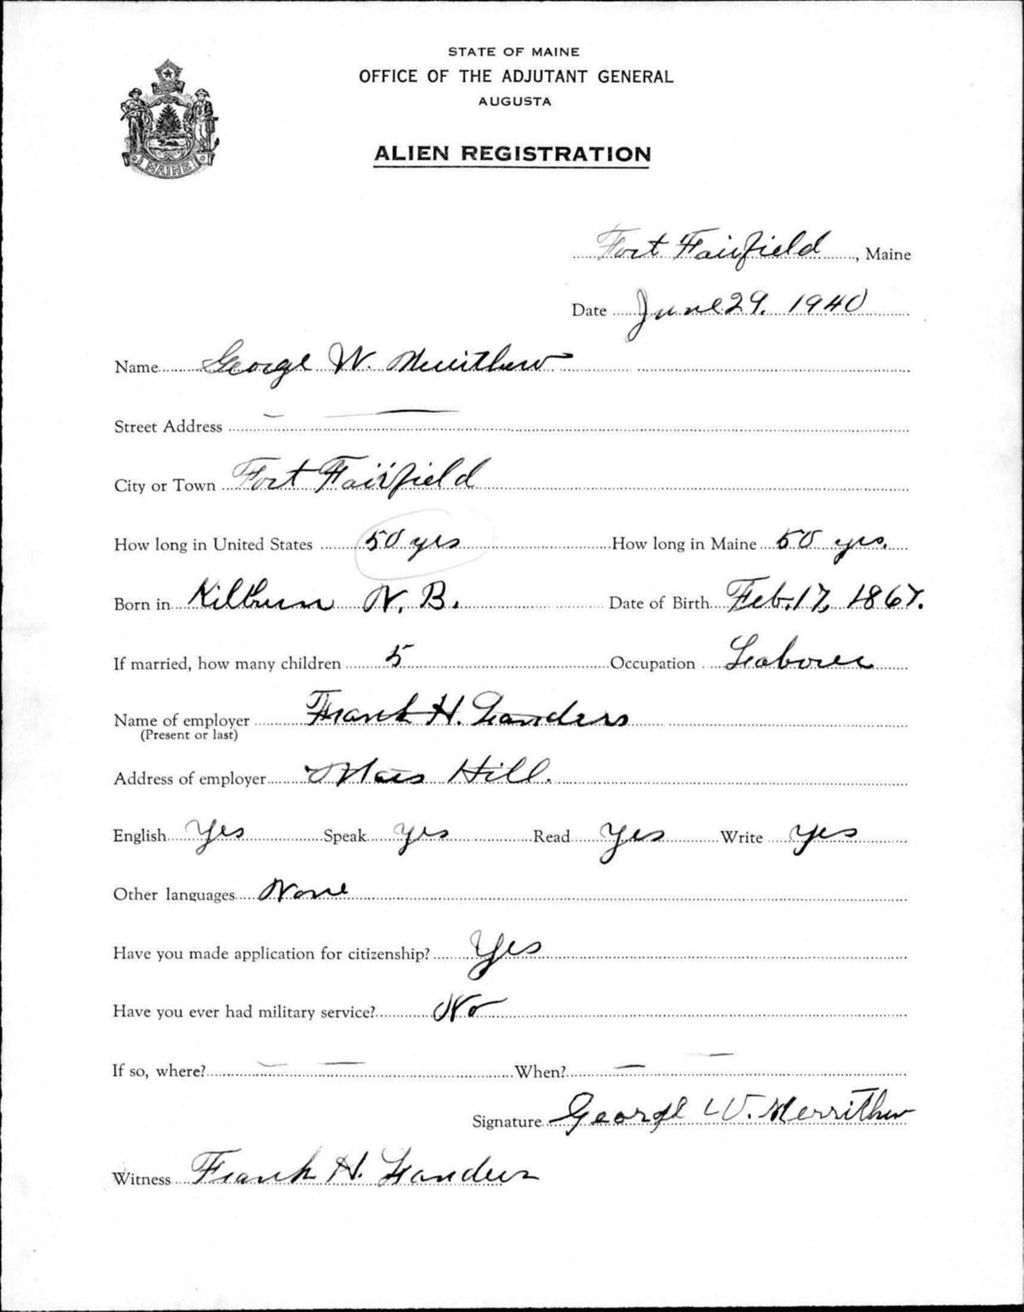 STATE OF MAINE
OFFICE OF THE ADJUTANT GENERAL
AUGUSTA
ALIEN REGISTRATION
MAINE
Fort Fairfield, Maine
Date June 29, 1940
Name George W. Merrithew
Street Address —
City or Town Fort Fairfield
How long in United States 50 yrs How long in Maine 50 yrs.
Born in Kilburn N. B. Date of Birth Feb. 17, 1867.
If married, how many children 5 Occupation Laborer
Name of employer Frank H. Landers
(Present or last)
Address of employer Mars Hill.
English Yes Speak yes Read yes Write yes
Other languages None
Have you made application for citizenship? Yes
Have you ever had military service? No
If so, where? — When? —
Signature George W. Merrithew
Witness Frank H. Landers